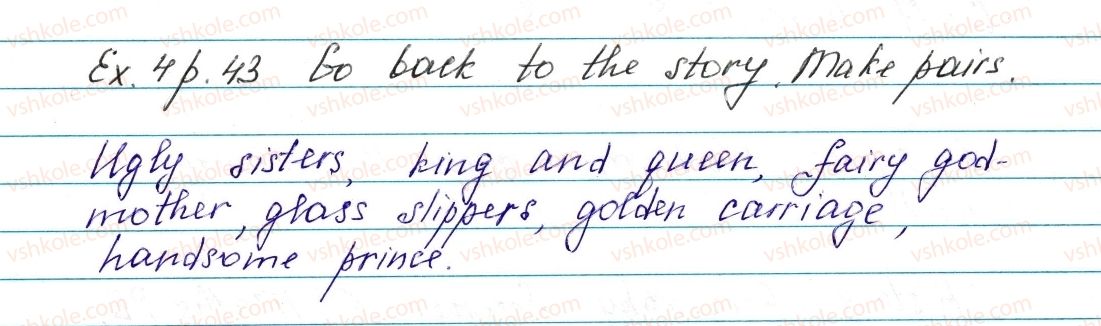 Ex. 4 p. 43 Go back to the story. Make pairs.
Ugly sisters, king and queen, fairy god-
mother, glass slippers, golden carriage,
handsome prince.